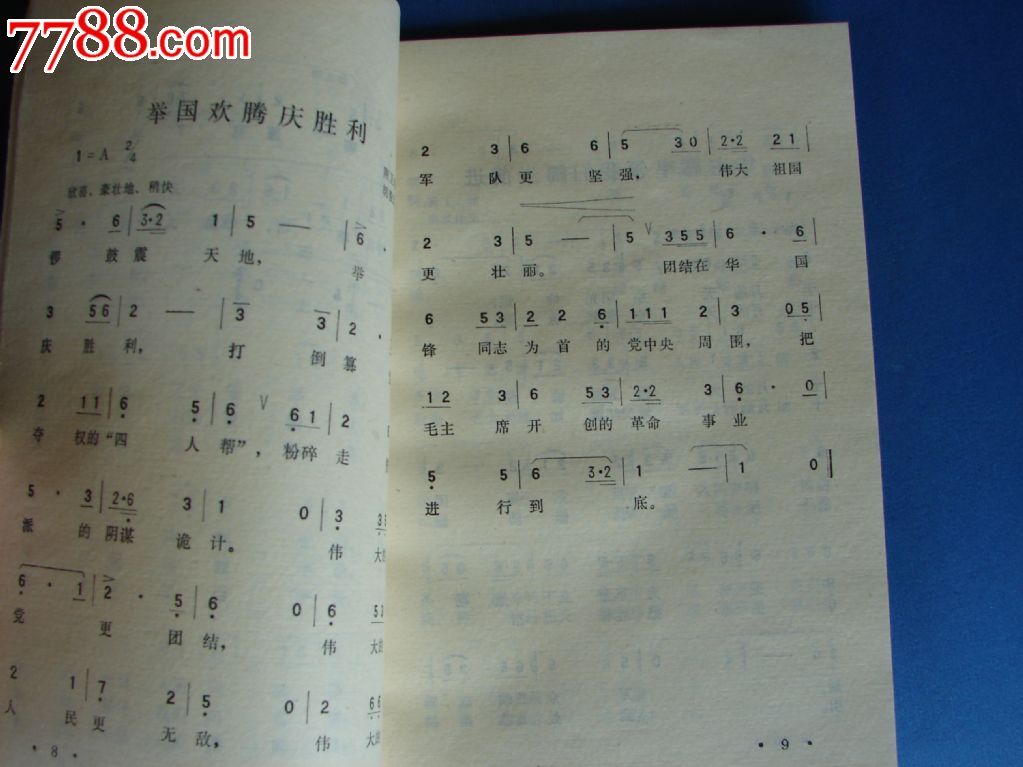 7788.com
举国欢腾庆胜利
1=A 2/4
欢喜、豪壮地、稍快
5 · 6 | 3·2 1 | 5 — | 6 ·
锣 鼓震 天地, 举
3 56 | 2 — | 3 3 | 2
庆 胜利, 打 倒篡
2 11 | 6 5 | 6 V 61 | 2
夺 权的“四 人帮”, 粉碎走
5 · 3 | 2·6 3 | 1 0 | 3 ·
派 的阴谋 诡计。 伟
6 · 1 | 2 · 5 | 6 0 | 6 · 53
党 更 团结, 伟 大
2 1 | 7 2 | 5 0 | 2 · 66
人 民更 无敌, 伟 大
· 8 ·
2 3 | 6 6 | 5 30 | 2·2 21 |
军 队更 坚强, 伟大 祖国
2 3 | 5 — | 5 V 355 | 6 · 6 |
更 壮丽。 团结在华 国
6 53 | 2 2 6 | 111 2 | 3 05 |
锋 同志为首的党中央 周围, 把
12 3 | 6 53 | 2·2 3 | 6 · 0 |
毛主 席开 创的革命 事业
5 5 | 6 3·2 | 1 — | 1 0 ‖
进 行到 底。
· 9 ·